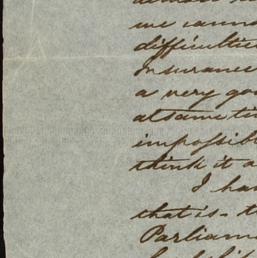 we canno
difficultie
Insurance
a very goo
at same ti
impossibl
think it a
I ha
that is - t
Parliam